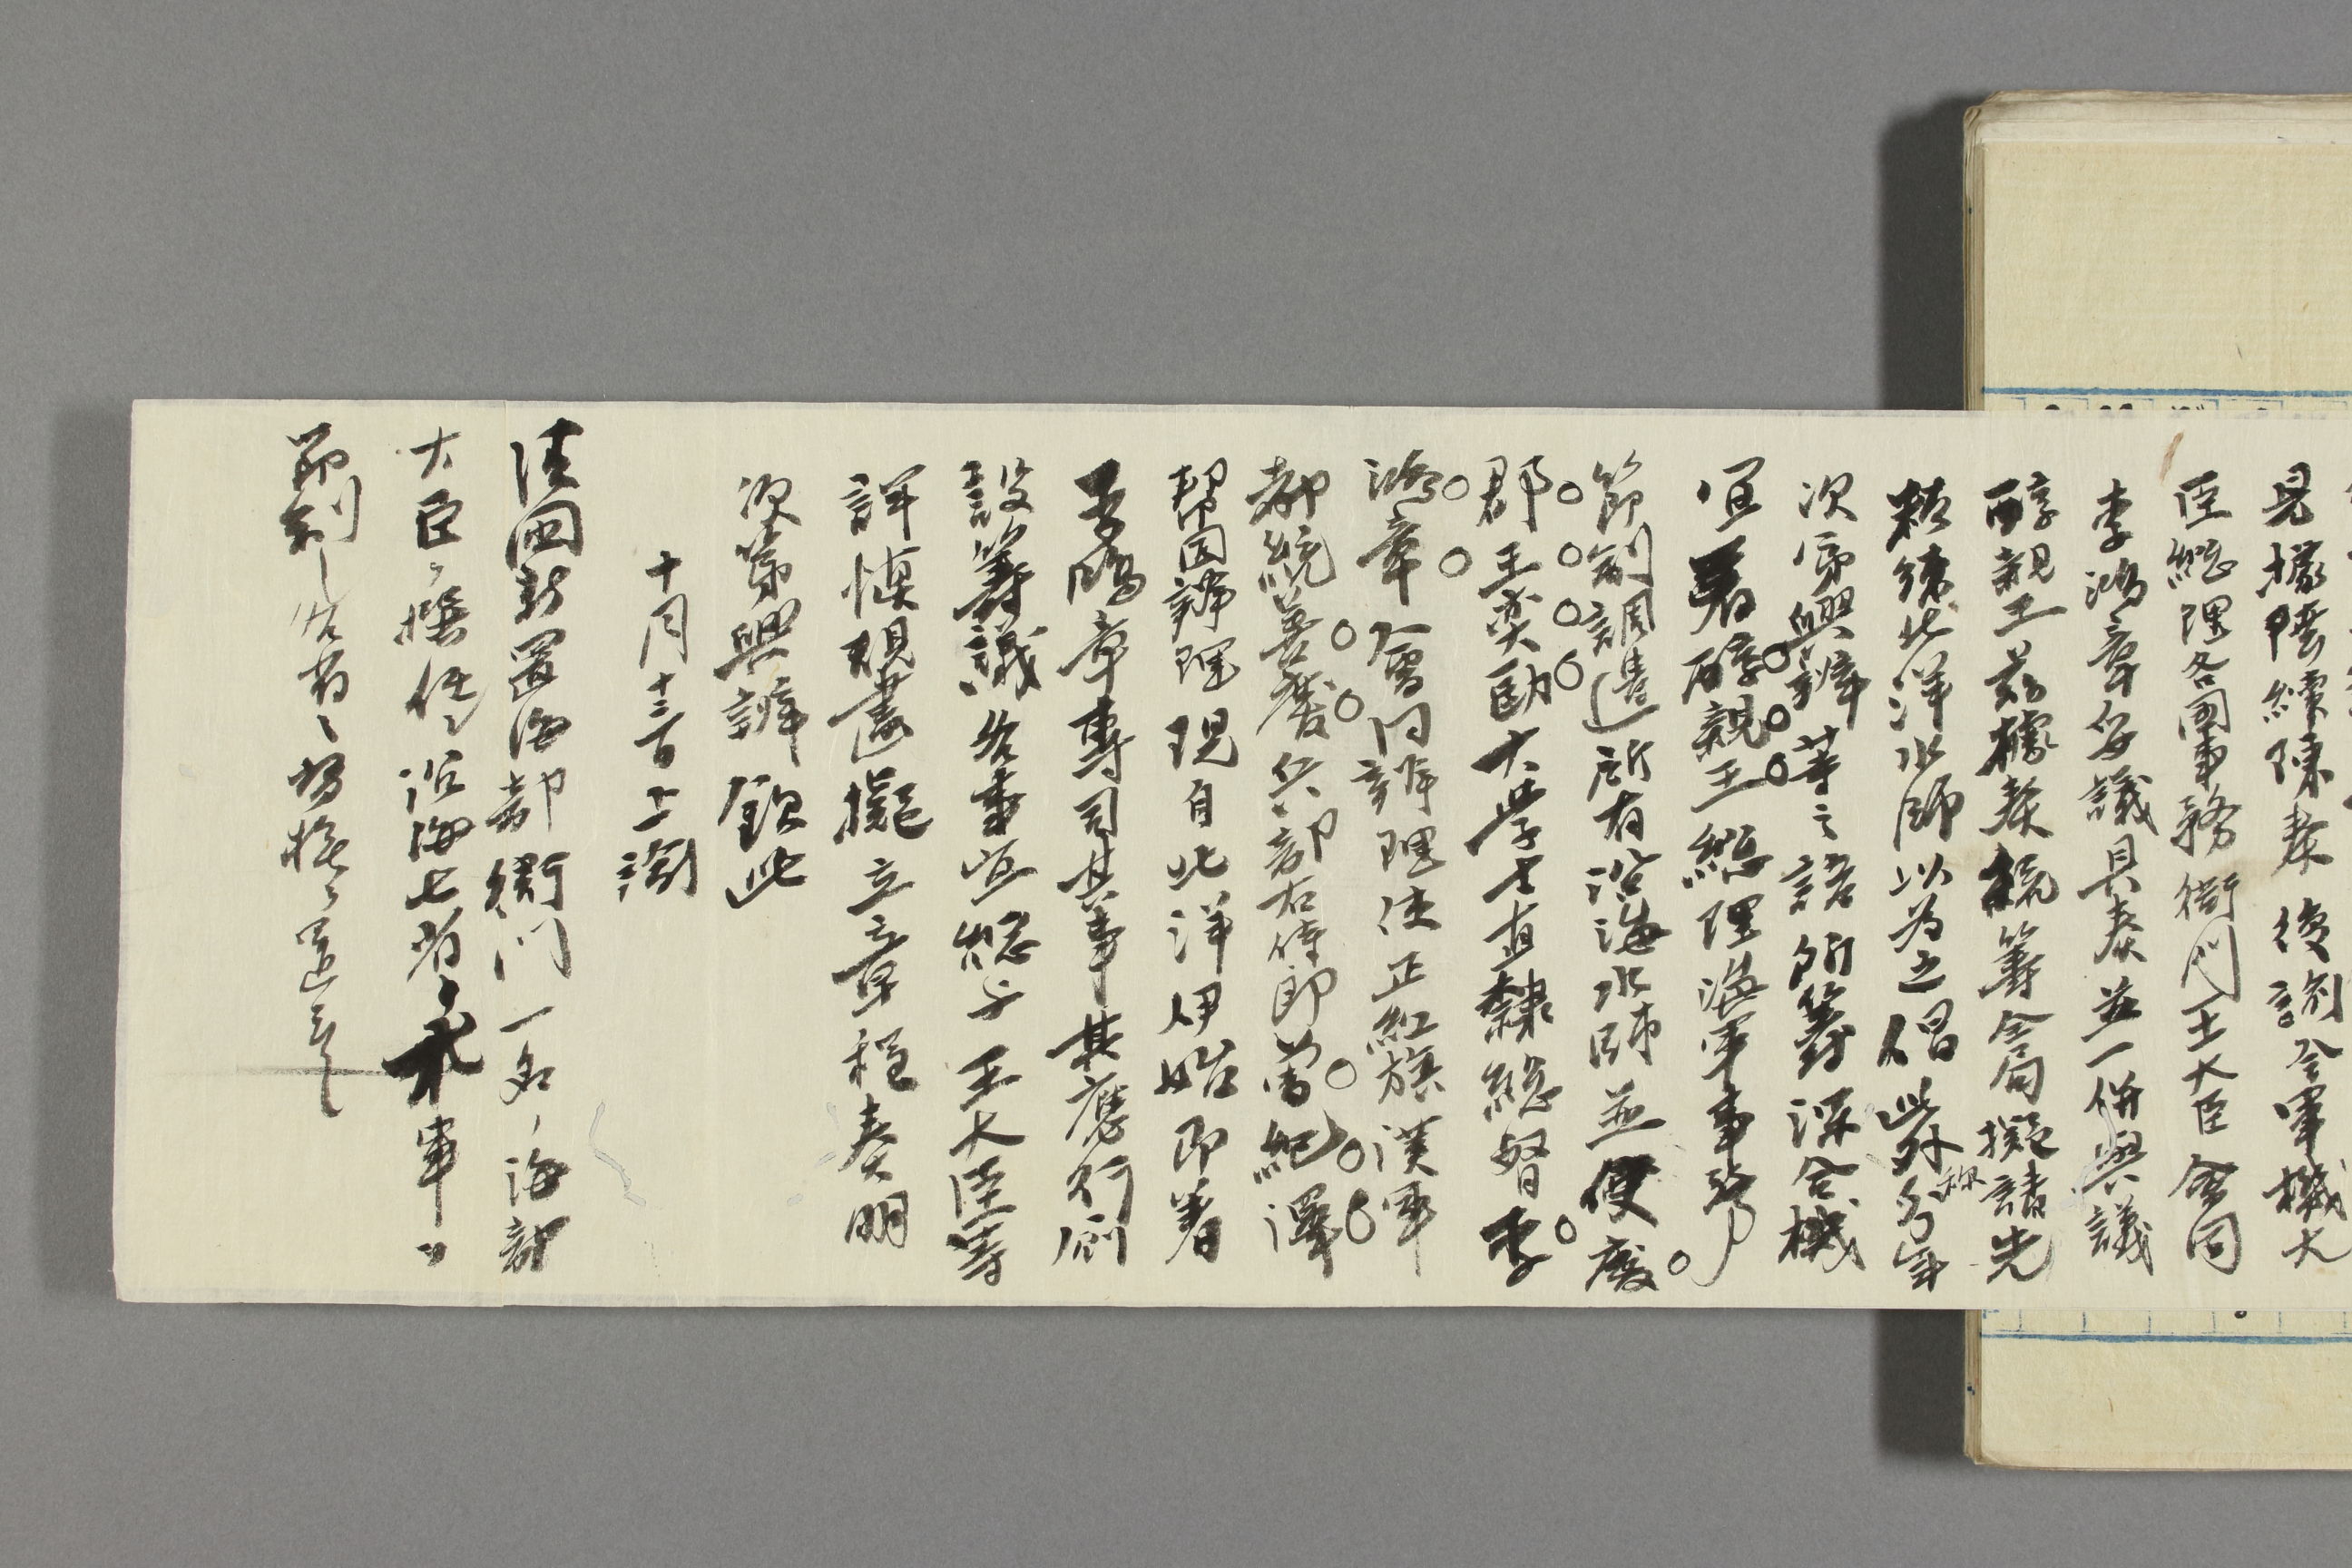 見據陸續陳奏後諭令軍機大
臣總理各國事務衙門王大臣會同
李鴻章妥議具奏並一併與議
醇親王茲據奏統籌全局擬請先
精練北洋水師以為之倡此外分年
次第興辦等之語所籌深合機
宜著醇親王總理海軍事務
節制調遣所有沿海水師並便慶
郡王奕劻大學士直隸總督李
鴻章會同辦理使正紅旗漢軍
都統善慶兵部右侍郎曾紀澤
幫同辦理現自北洋伊始即著
李鴻章專司其事其應行創
設籌議各事宜總子王大臣等
詳慎規畫擬立章程奏明
次第興辦欽此
十月十三日上諭
清國新置海部衙門一名海部
大臣撰任沿海七省水軍
節制